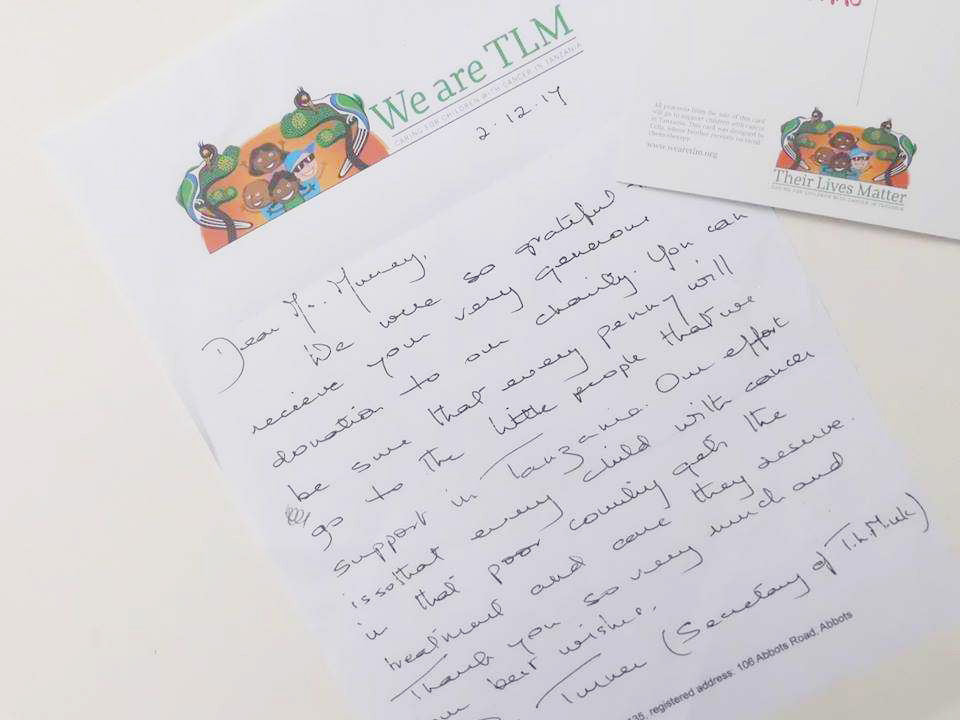 We are TLM
CARING FOR CHILDREN WITH CANCER IN TANZANIA
2.12.17
Dear Mr. Murray,
We were so grateful
recieve your very generous
donation to our charity. You can
be sure that every penny will
go to the little people that we
support in Tanzania. Our effort
is so that every child with cancer
in that poor country gets the
treatment and care they deserve.
Thank you so very much and
our best wishes.
Turner (Secretary of T.L.M.uk)
registered address: 106 Abbots Road, Abbots
All proceeds from the sale of this card
will go to support children with cancer
in Tanzania. This card was designed by
www.wearetlm.org
Their Lives Matter
CARING FOR CHILDREN WITH CANCER IN TANZANIA